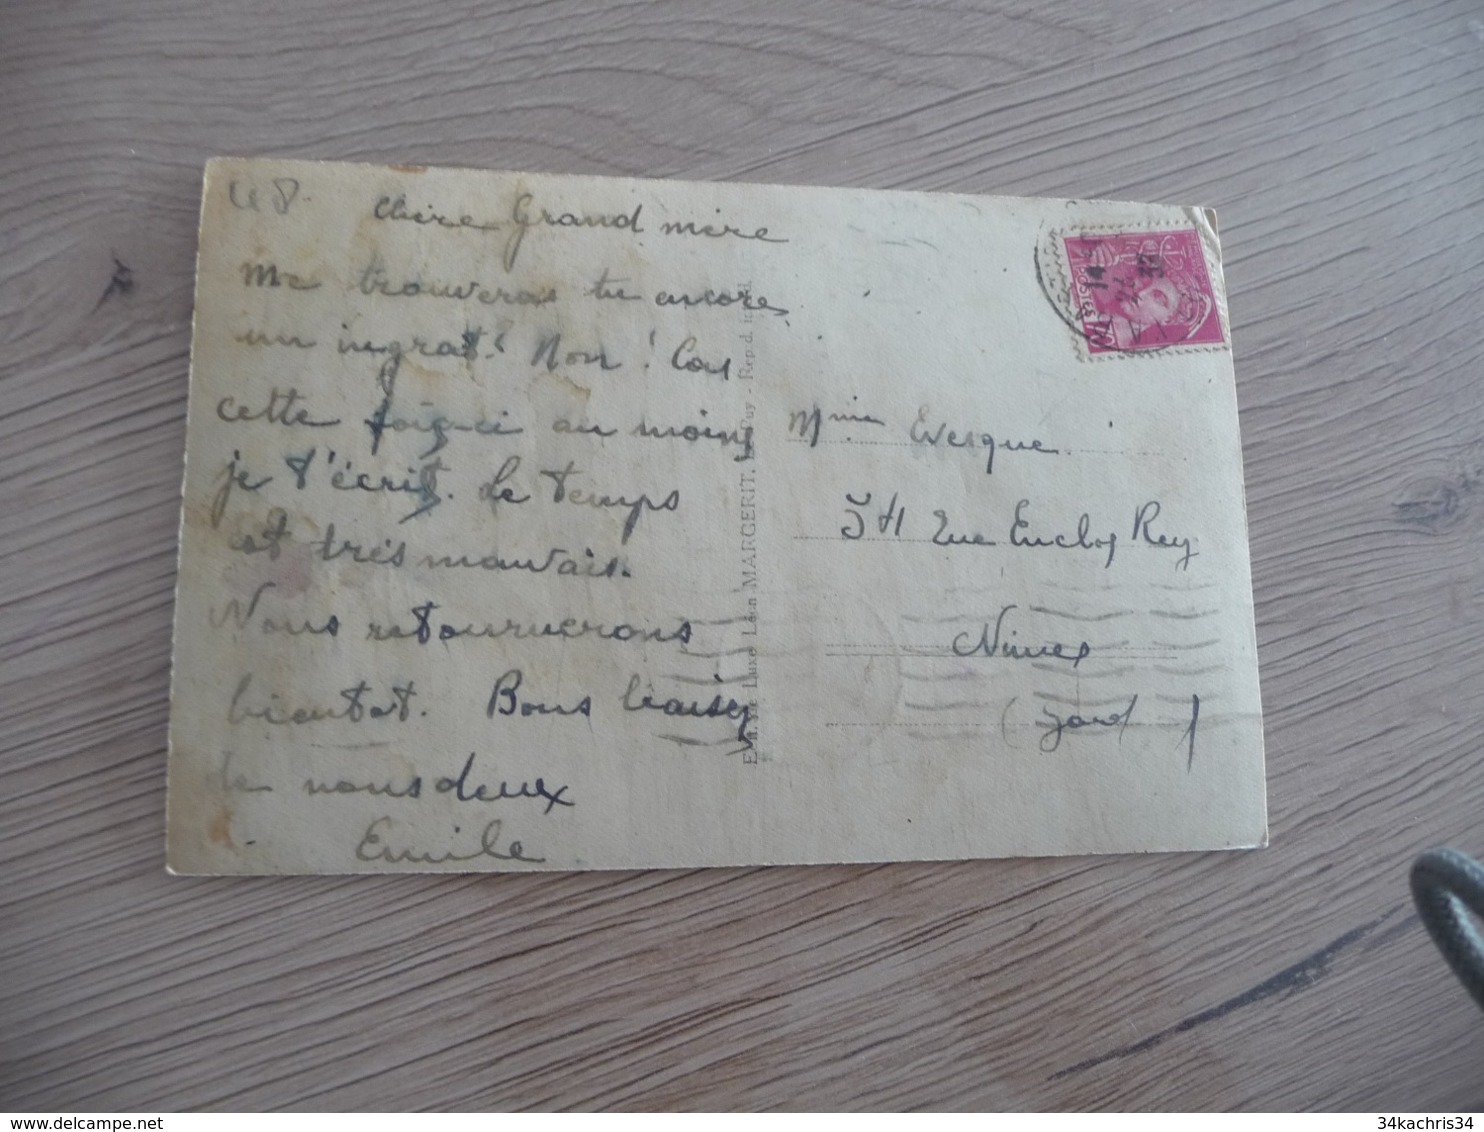 48.
Chère Grand mère
Me trouveras tu encore
un ingrat? Non! Car
cette fois-ci au moins
je t'écris. Le temps
est très mauvais.
Nous retournerons
bientot. Bons baisers
de nous deux
Emile
Léon MARGERIT, Le Puy - Reprod.
Mme Evesque
34 rue Enclos Rey
Nimes
(Gard)
POSTES
34kachris34